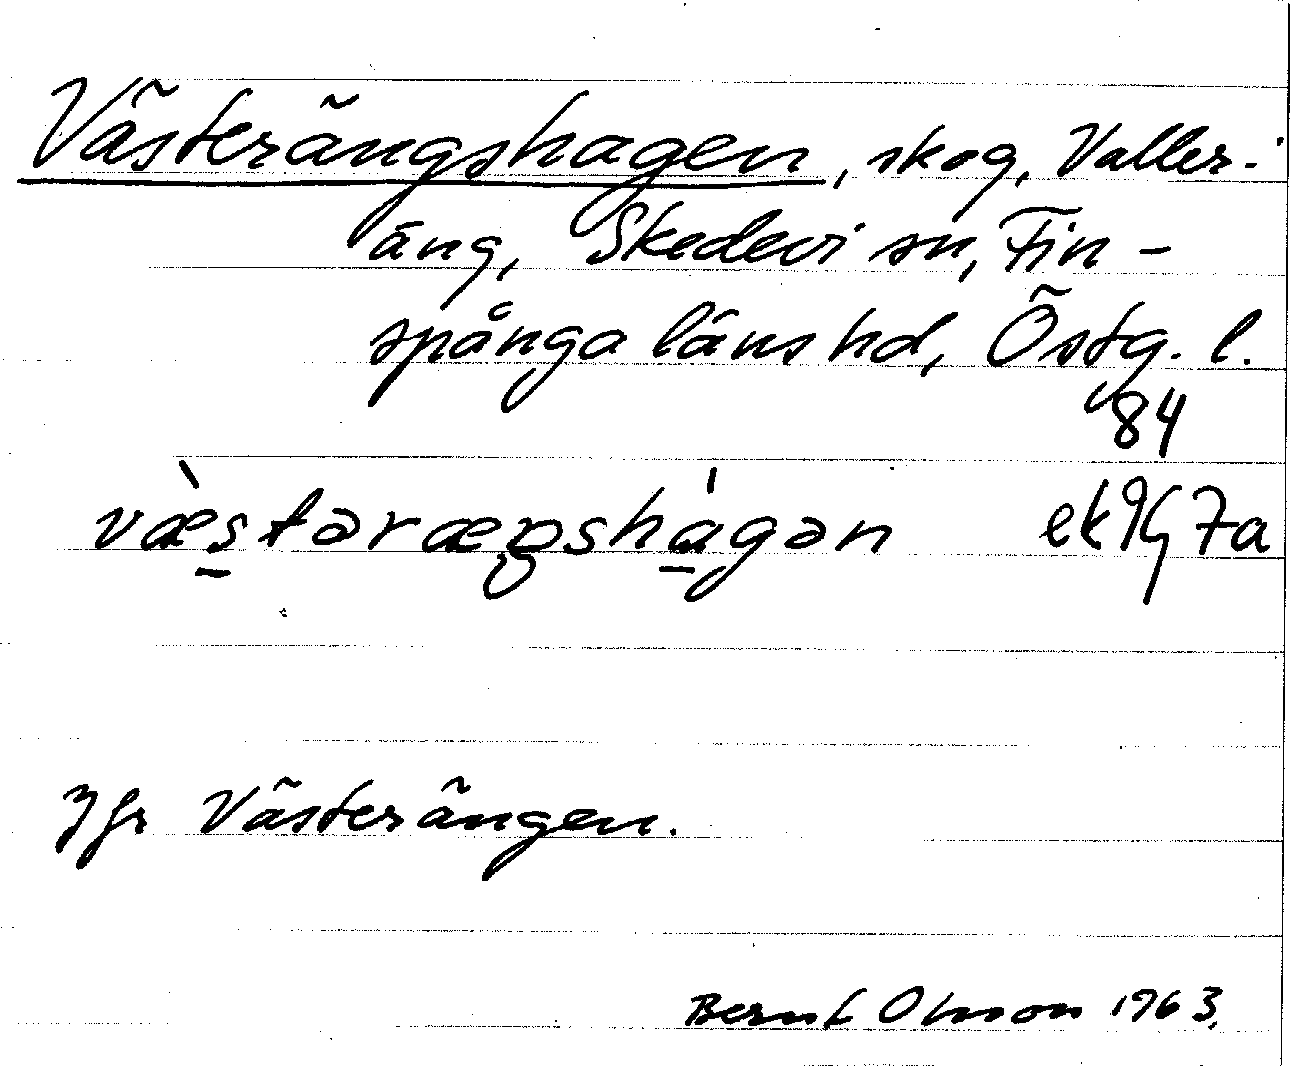 Västerängshagen, skog, Valler-
äng, Skedevi sn, Fin-
spånga läns hd, Östg. l.
84
væ̀stəræŋshágən ek 9G 7a
Jfr Västerängen.
Bernt Olsson 1963.